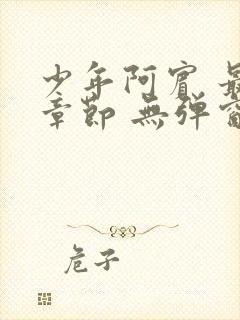 少年阿賓 最
章節 無彈窗
危子